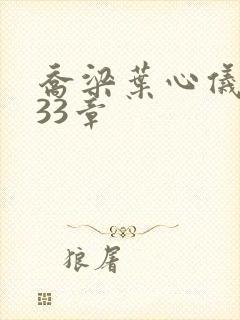 乔梁葉心儀
33章
狼屠